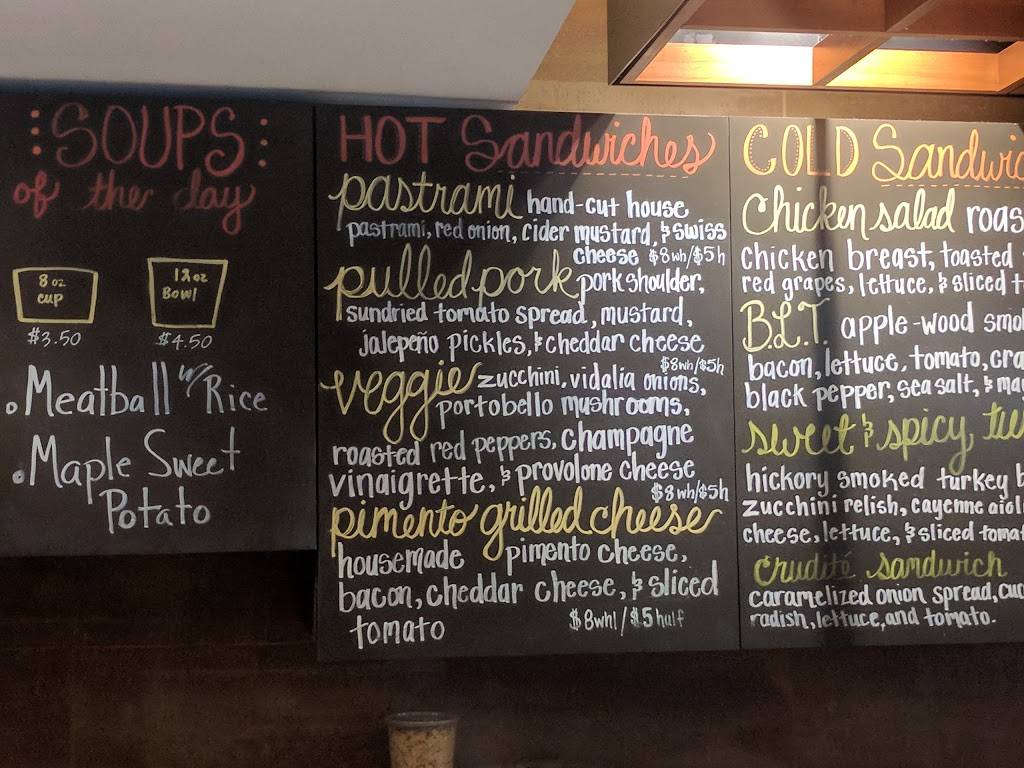 SOUPS
of the day
8 oz
cup
$3.50
12 oz
Bowl
$4.50
Meatball w/ Rice
Maple Sweet
Potato
HOT Sandwiches
pastrami hand-cut house
pastrami, red onion, cider mustard, & swiss
cheese $8wh/$5h
pulled pork pork shoulder,
sundried tomato spread, mustard,
jalepeño pickles, & cheddar cheese
$8wh/$5h
veggie zucchini, vidalia onions,
portobello mushrooms,
roasted red peppers, champagne
vinaigrette, & provolone cheese
$8wh/$5h
pimento grilled cheese
housemade pimento cheese,
bacon, cheddar cheese, & sliced
tomato $8whl/$5half
COLD Sandwic
Chicken salad roas
chicken breast, toasted
red grapes, lettuce, & sliced t
B.L.T. apple-wood smo
bacon, lettuce, tomato, cra
black pepper, sea salt, & ma
sweet & spicy tu
hickory smoked turkey b
zucchini relish, cayenne aiol
cheese, lettuce, & sliced tomat
Crudité sandwich
caramelized onion spread, cuc
radish, lettuce, and tomato.